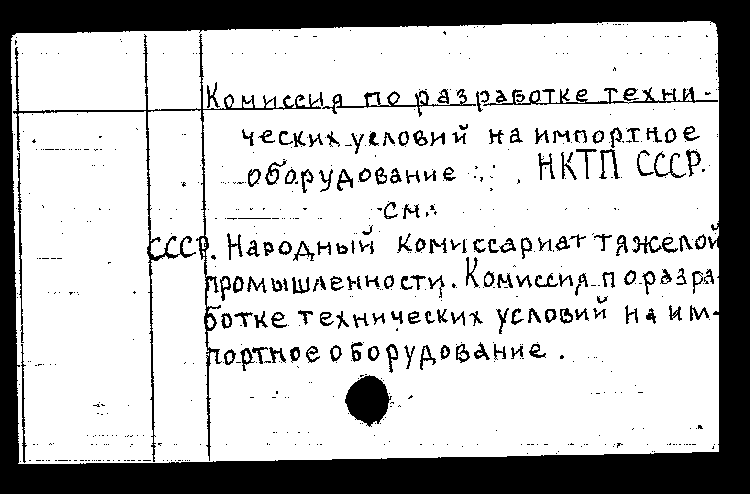 Комиссия по разработке техни-
ческих условий на импортное
оборудование НКТП СССР.
см.
СССР. Народный комиссариат тяжелой
промышленности. Комиссия по разра-
ботке технических условий на им-
портное оборудование.